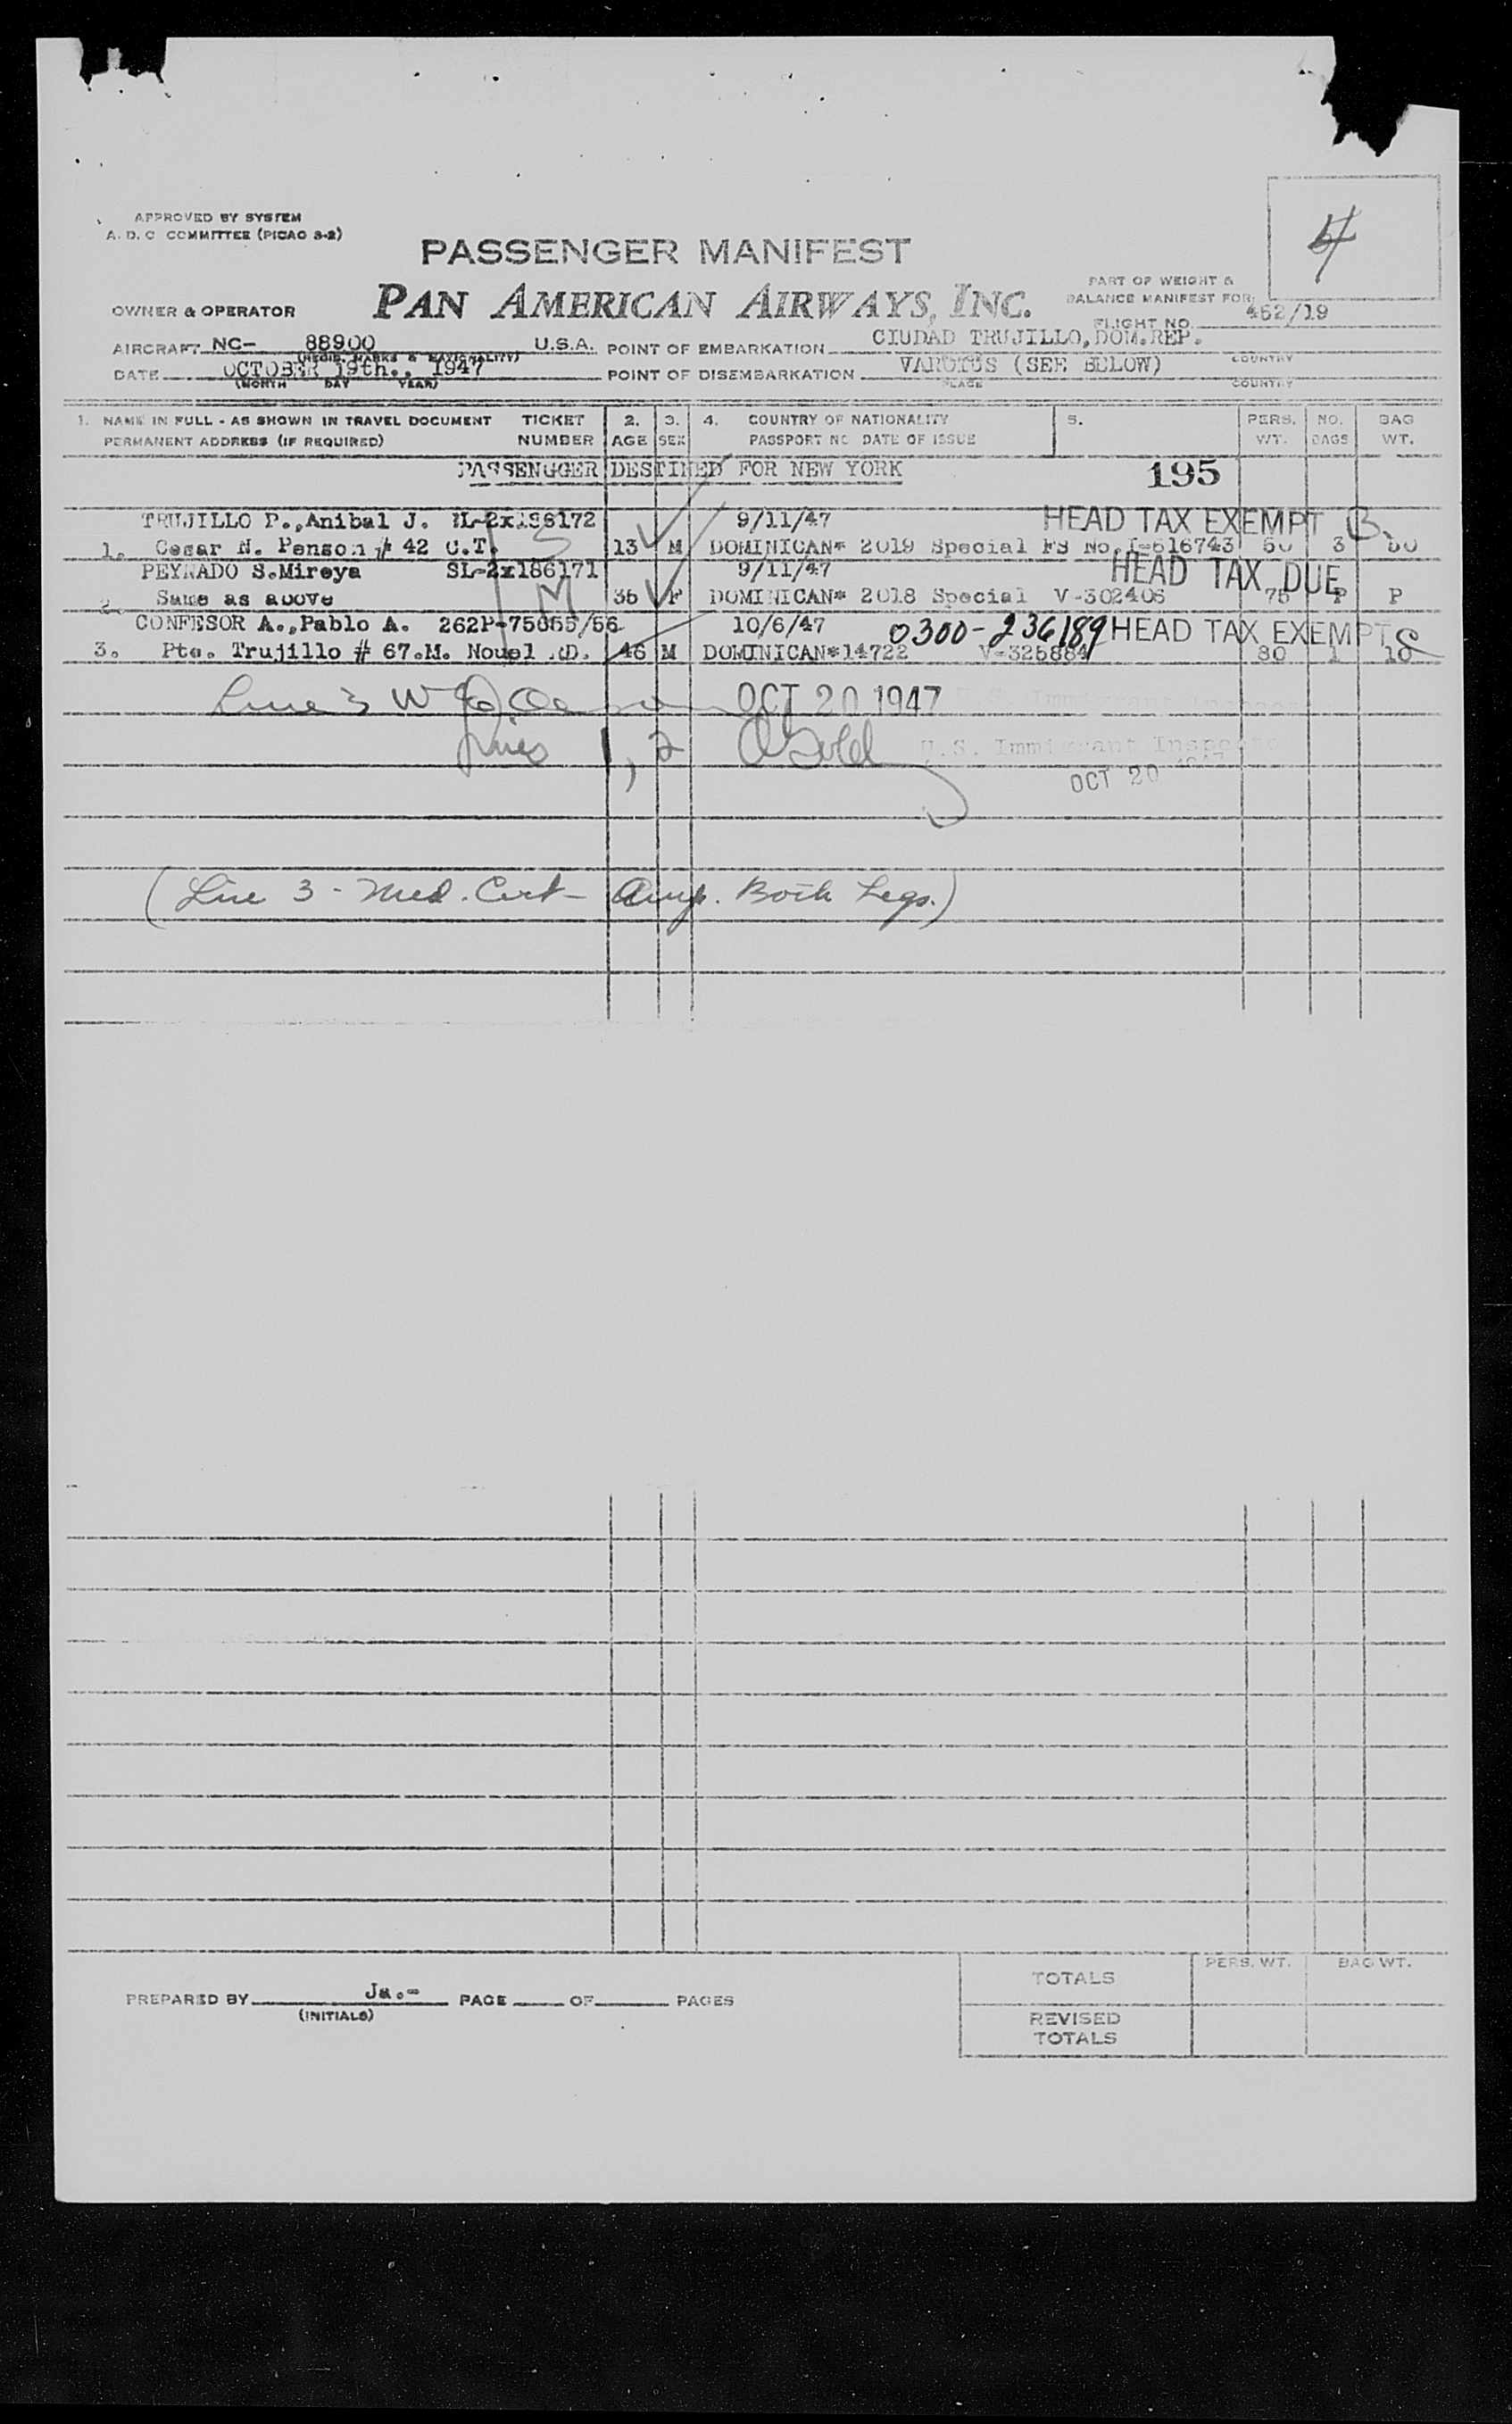 APPROVED BY SYSTEM
A. D. C COMMITTEE (PICAO 3-2)
PASSENGER MANIFEST
4
OWNER & OPERATOR
PAN AMERICAN AIRWAYS, INC.
PART OF WEIGHT &
BALANCE MANIFEST FOR:
FLIGHT NO. 452/19
AIRCRAFT NC- 88900 U.S.A. POINT OF EMBARKATION CIUDAD TRUJILLO, DOM.REP.
(REGIS. MARKS & NATIONALITY) COUNTRY
DATE OCTOBER 19th., 1947 POINT OF DISEMBARKATION VAROIUS (SEE BELOW)
(MONTH DAY YEAR) PLACE COUNTRY
1. NAME IN FULL - AS SHOWN IN TRAVEL DOCUMENT TICKET 2. 3. 4. COUNTRY OF NATIONALITY 5. PERS. NO. BAG
PERMANENT ADDRESS (IF REQUIRED) NUMBER AGE SEX PASSPORT NO DATE OF ISSUE WT. BAGS WT.
PASSENGGER DESTINED FOR NEW YORK 195
TRUJILLO P.,Anibal J. 2x186172 9/11/47 HEAD TAX EXEMPT B.
1. Cesar N. Penson # 42 C.T. S 13 M DOMINICAN* 2019 Special FS No.I-616743 50 3 50
PEYNADO S.Mireya SL-2x186171 9/11/47 HEAD TAX DUE
2. Same as above M 35 F DOMINICAN* 2018 Special V-302406 75 P P
CONFESOR A.,Pablo A. 262P-75055/56 10/6/47 0300-236189 HEAD TAX EXEMPT S
3. Pte. Trujillo # 67.M. Nouel .D. 46 M DOMINICAN*14722 V-325884 80 1 10
Line 3 OCT 20 1947 U.S. Immigrant Inspector
Lines 1, 2 U.S. Immigrant Inspector
OCT 20 1947
(Line 3 - Med. Cert - Amp. Both Legs.)
PREPARED BY Ja.- PAGE OF PAGES
(INITIALS)
TOTALS PERS. WT. BAG WT.
REVISED
TOTALS